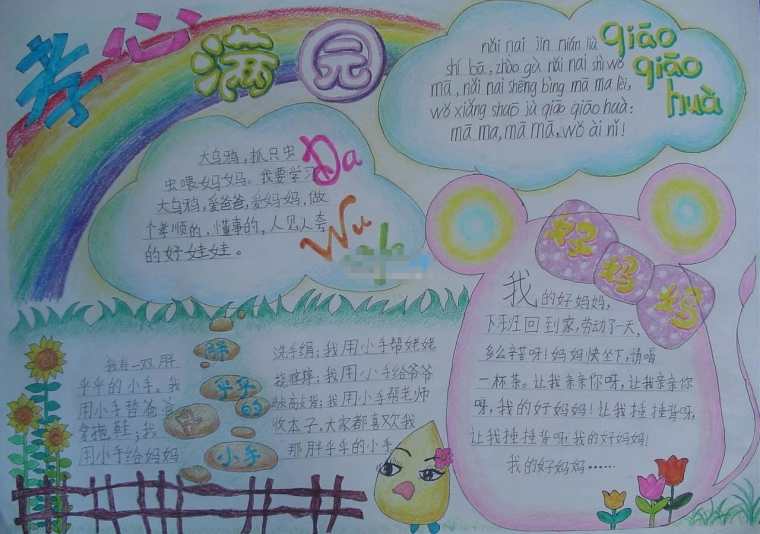 孝心满园
大乌鸦,扒只虫
虫喂妈妈。我要学习
大乌鸦,爱爸爸,爱妈妈,做
个孝顺的、懂事的,人见人夸
的好娃娃。
Da
Wu
qiāo
qiāo
huà
nǎi nai jīn nián liù
shí bā, zhào gù nǎi nai shì wǒ
mā, nǎi nai shēng bìng mā ma lèi,
wǒ xiǎng shuō jù qiāo qiāo huà:
mā ma, mā mā, wǒ ài nǐ!
好妈妈
我的好妈妈,
下班回到家,劳动了一天,
多么辛苦呀!妈妈快坐下,请喝
一杯茶。让我亲亲你呀,让我亲亲你
呀,我的好妈妈!让我捶捶背呀,
让我捶捶背呀!我的好妈妈!
我的好妈妈……
胖
乎乎
的
小手
我有一双胖
乎乎的小手。我
用小手替爸爸
拿拖鞋;我
用小手给妈妈
洗手绢;我用小手帮姥姥
挠痒痒;我用小手给爷爷
我用小手帮老师
收本子,大家都喜欢我
那胖乎乎的小手